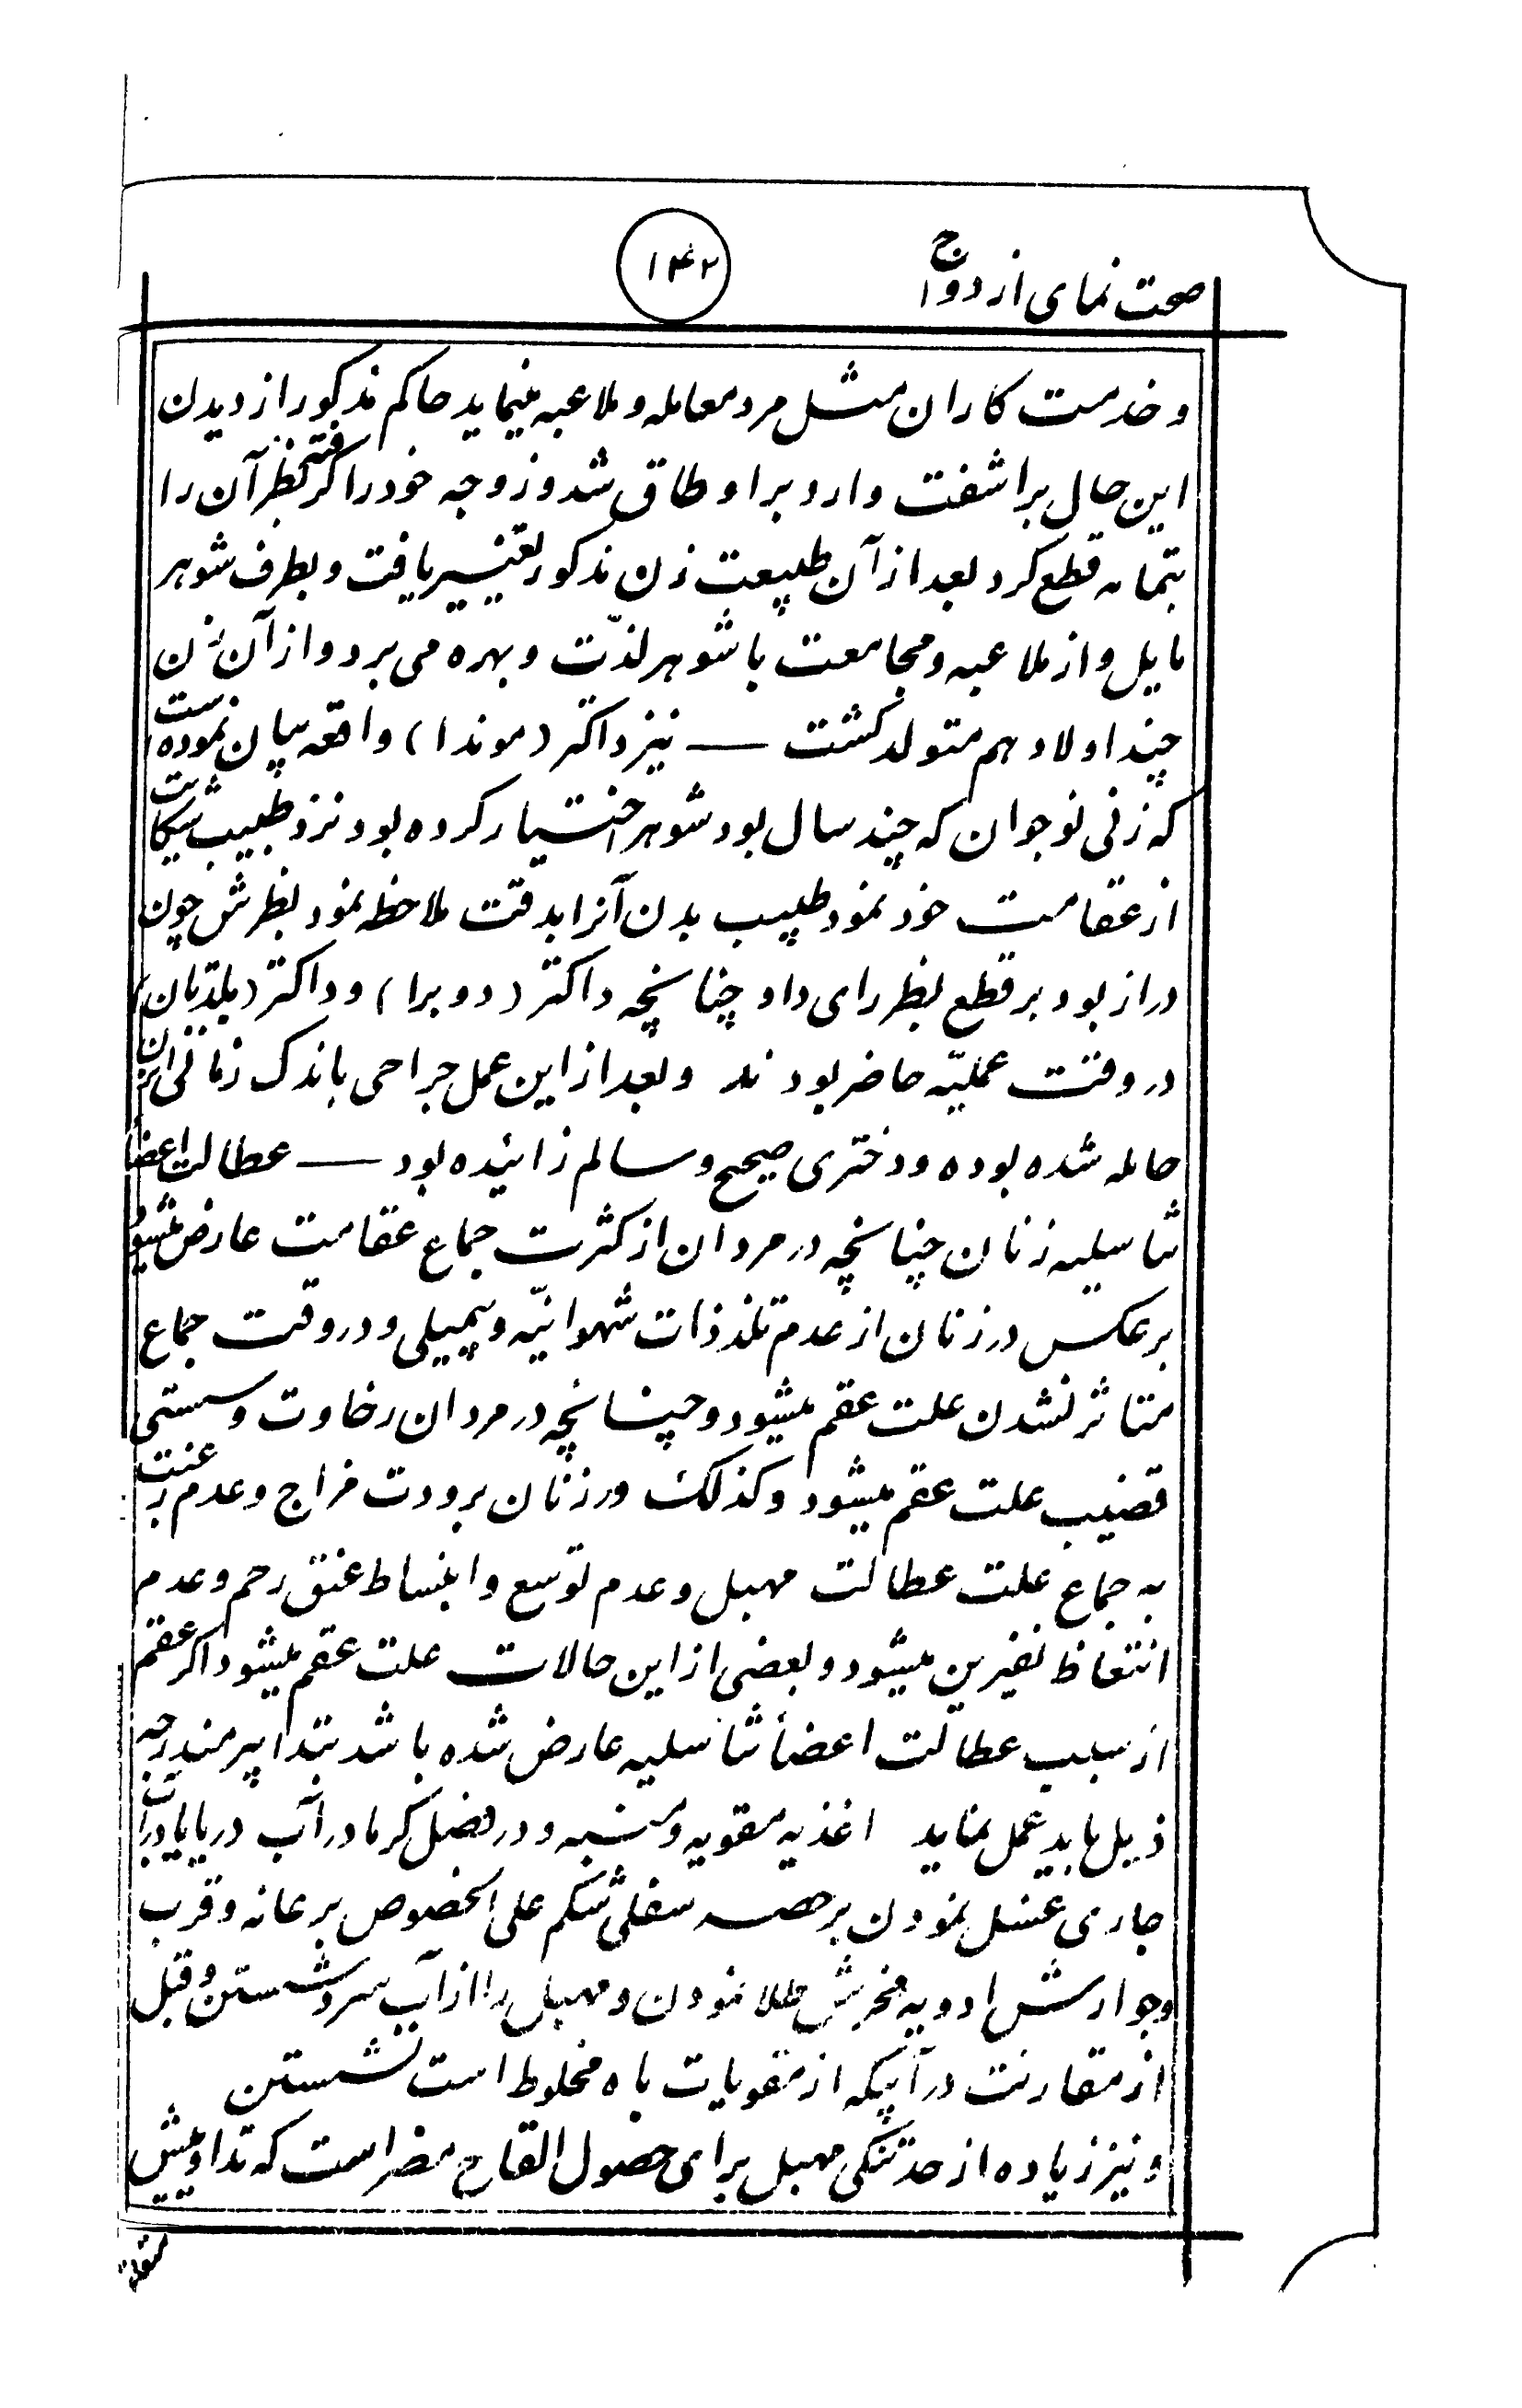 صحت نمای ازدواج
۱۴۲
و خدمت کاران مثل مرد معامله و ملاعبه مینماید حاکم مذکور از دیدن
این حال براشفت وارد براوطاق شد و زوجه خود را گرفته بظر آن را
بتمامه قطع کرد بعد از آن طبیعت زن مذکور تغییر یافت و بطرف شوهر
مایل و از ملاعبه و مجامعت با شوهر لذّت و بهره می برد و از آن زن
چند اولاد هم متولد گشت — نیز داکتر (موندا) واقعه بیان نموده است
که زنی نوجوان که چند سال بود شوهر اختیار کرده بود نزد طبیب شکایت
از عقامت خود نمود طبیب بدن آنرا بدقت ملاحظه نمود بظرش چون
دراز بود بر قطع بظر رای داد چنانچه داکتر (دوبرا) و داکتر
در وقت عملیّه حاضر بودند و بعد از این عمل جراحی باندک زمانی
حامله شده بوده و دختری صحیح و سالم زائیده بود — عطالت اعضا
تناسلیه زنان چنانچه در مردان از کثرت جماع عقامت عارض میشود
برعکس در زنان از عدم تلذذات شهوانیّه و بیمیلی و در وقت جماع
متاثر نشدن علت عقم میشود و چنانچه در مردان رخاوت و سستی
قضیب علت عقم میشود و کذلک در زنان برودت مزاج و عدم رغبت
به جماع علت عطالت مهبل و عدم توسع و انبساط عنق رحم و عدم
انتعاظ نفیرین میشود و بعضی از این حالات علت عقم میشود اگر عقم
از سبب عطالت اعضأ تناسلیه عارض شده باشد بتدابیر مندرجه
ذیل باید عمل نماید اغذیه مقویه و منبه و در فصل گرما در آب دریا یا در آب
جاری غسل نمودن بر حصه سفلی شکم علی الخصوص بر عانه و قرب
و جوارش ادویه مخرش طلا نمودن و مهبل را از آب سرد شستن و قبل
از مقارنت در آبیکه از مقویات باه مخلوط است نشستن
و نیز زیاده از حد تنگی مهبل برای حصول القاح مضر است که تداویش